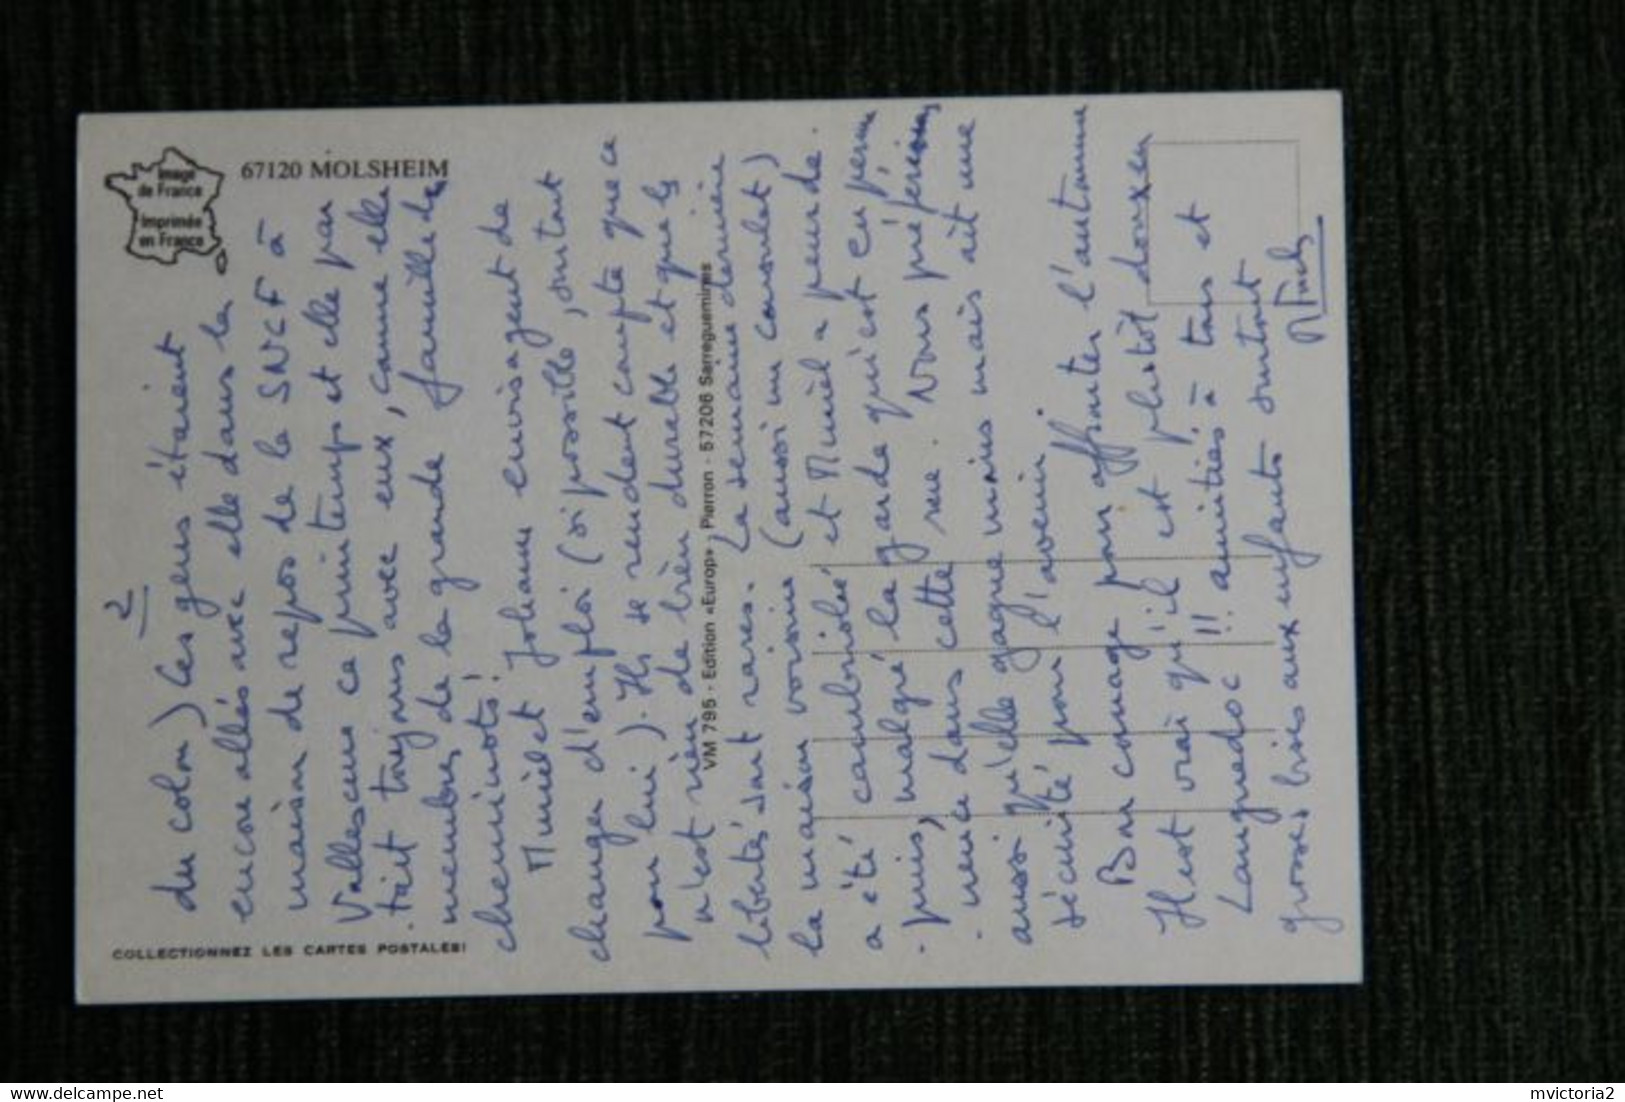 67120 MOLSHEIM
Image
de France
Imprimée
en France
COLLECTIONNEZ LES CARTES POSTALES!
VM 795 - Edition «Europ» , Pierron - 57206 Sarreguemines
2
du colon) les gens étaient
encore allés avec elle dans la
maison de repos de la SNCF à
ce printemps et elle par
tait toujours avec eux, comme elle
membres de la grande famille de
cheminots!
Muriel et envisagent de
changer d'emploi (si possible, surtout
pour lui). Ils se rendent compte que ce
n'est rien de bien durable et que ls
libertés sont rares. La semaine dernière
la maison voisine (aussi un consulat)
a été cambriolée et Muriel a peur de.
puis, malgré la garde qui est en perm
nence dans cette rue. Nous préférerions
aussi qu'elle gagne moins mais ait une
sécurité pour l'avenir.
Bon courage pour affronter l'automne
Il est vrai qu'il est plutôt doux en
Languedoc !! amitiés à tous et
grosses bises aux enfants surtout